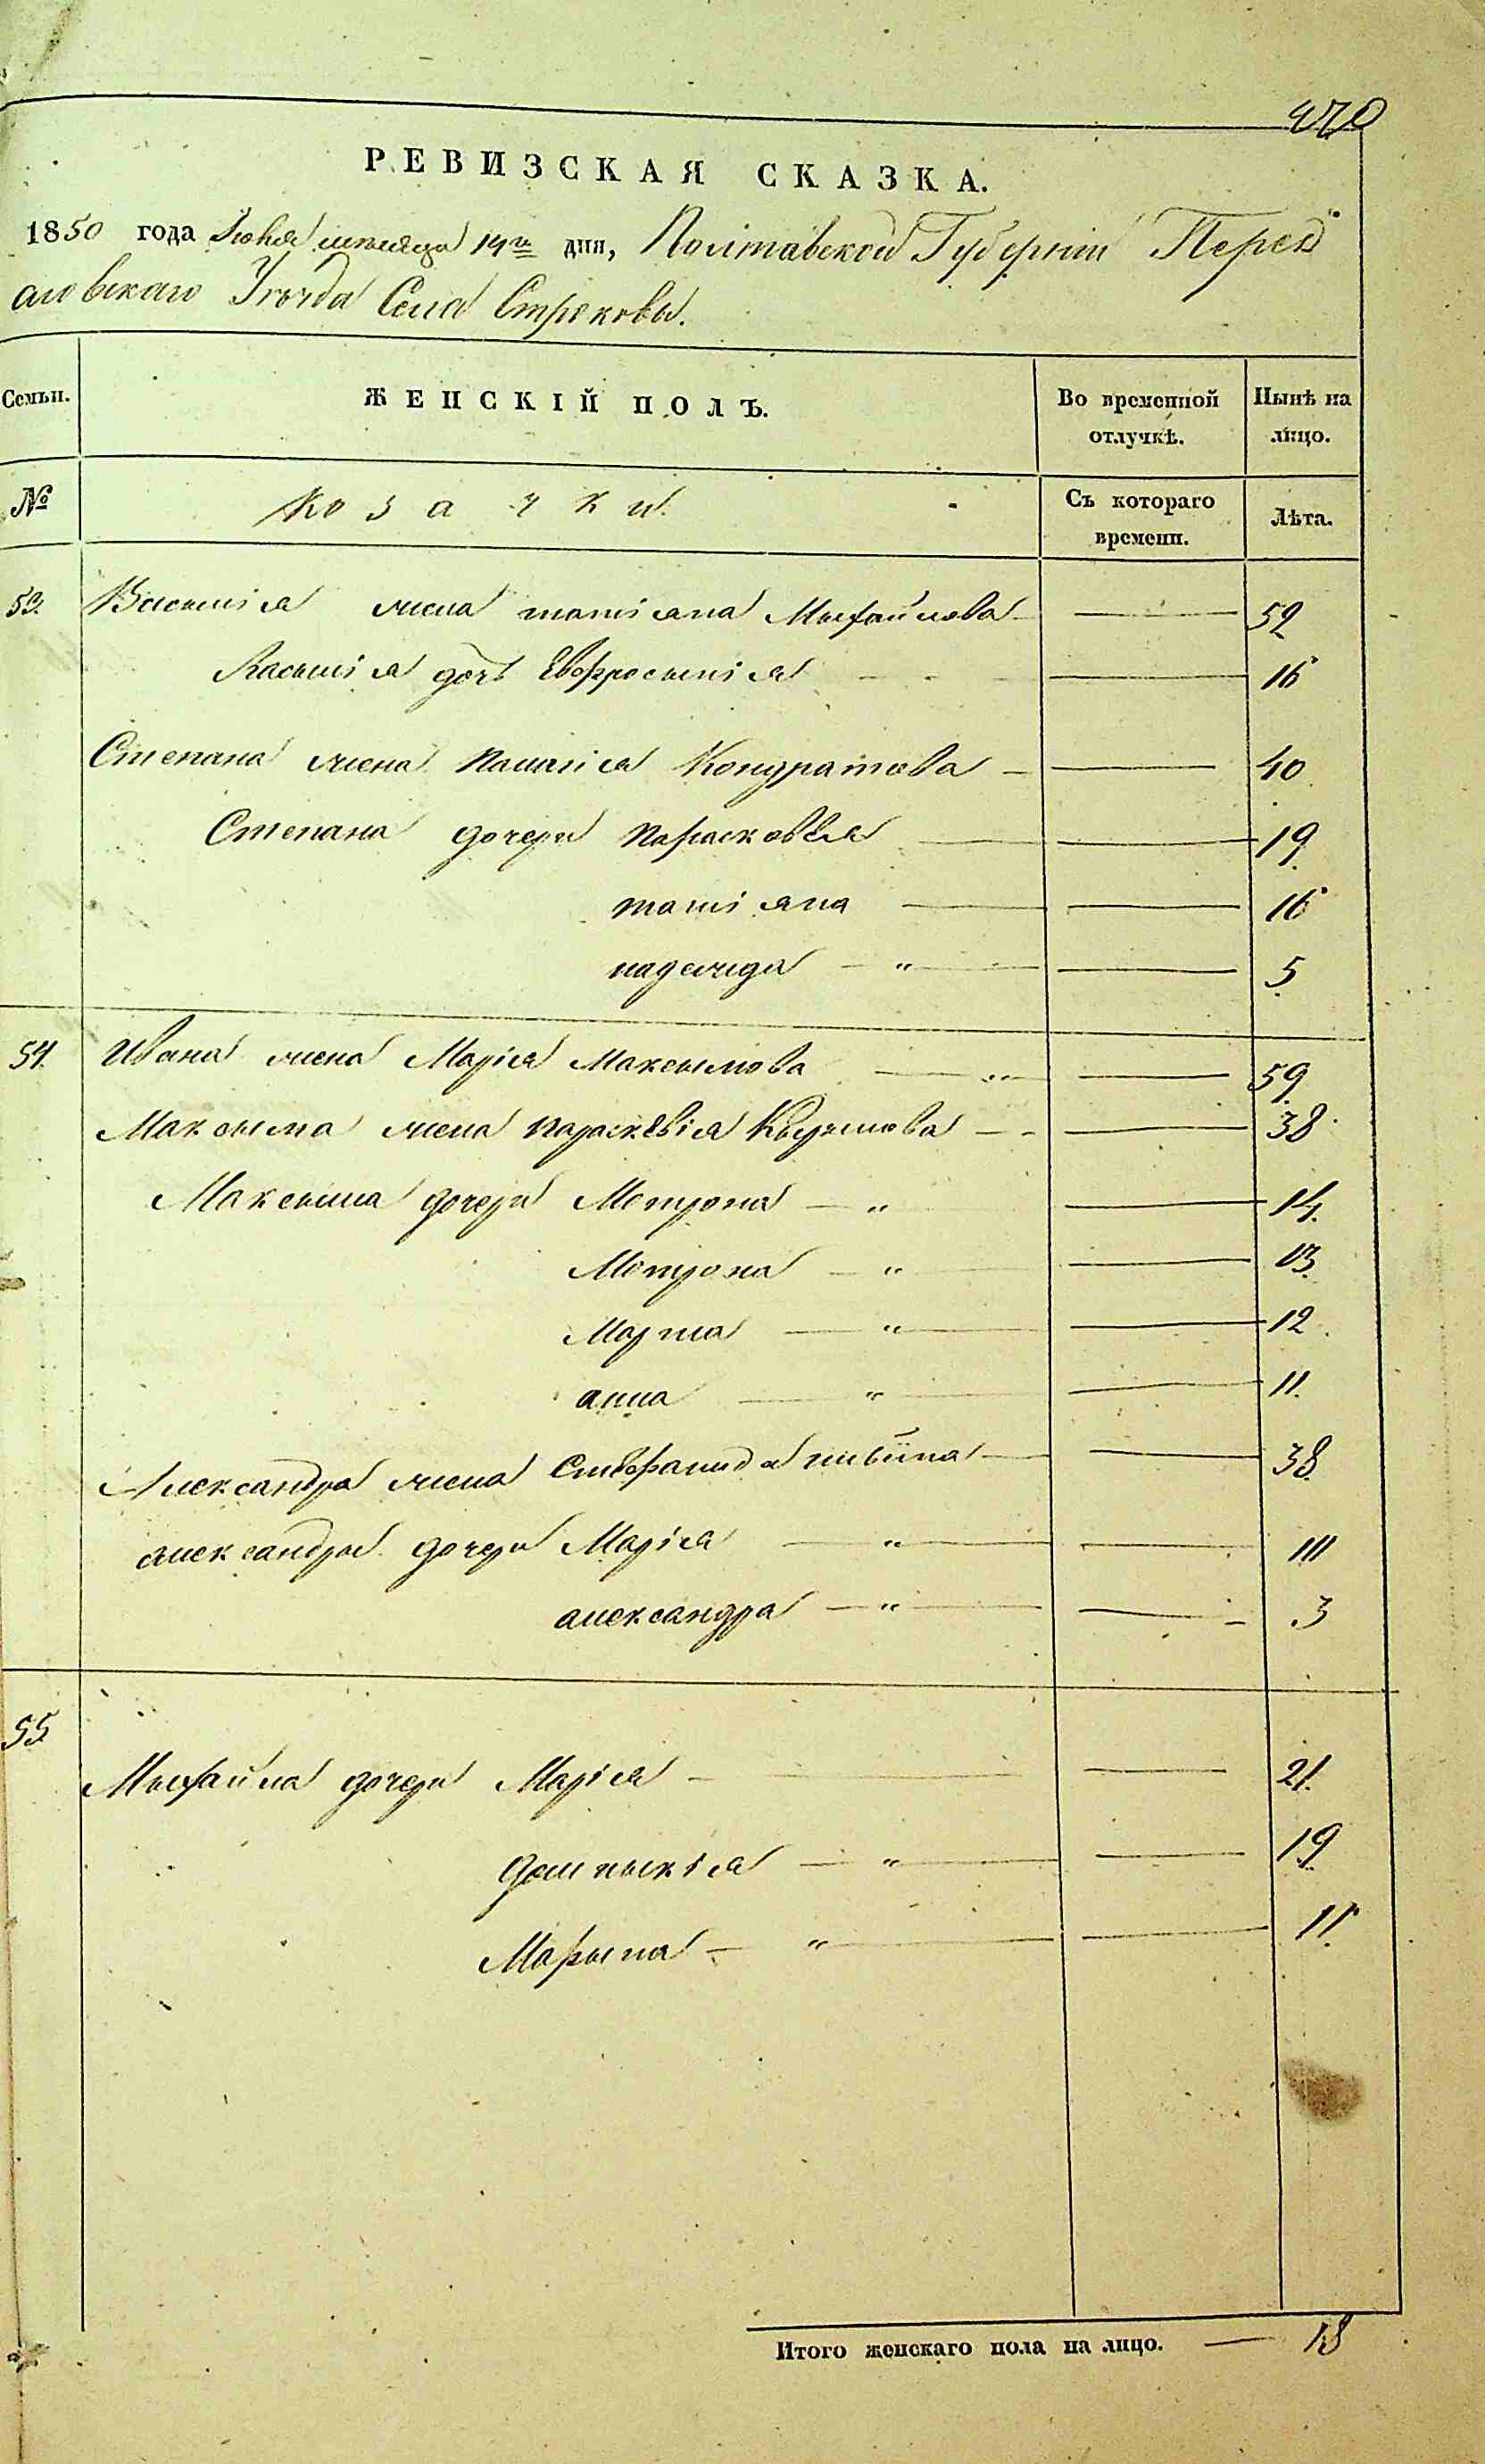 470
РЕВИЗСКАЯ СКАЗКА.
1850 года Июня месяца 14го дня, Полтавской Губернии Перея
славскаго Уезда Села Строковы.
Семьи. ЖЕНСКІЙ ПОЛЪ. Во временной отлучкѣ. Нынѣ на лицо.
№ Козачки. Съ котораго времени. Лѣта.
53. Василія жена татіана Мыхайлова 52
Василія дочь Евфросынія 16
Степана жена Палагія Кондратова 40
Степана дочери Парасковья 19
татіана 16
надежда 5
54. Ивана жена Марія Максымова 59
Максыма жена параскевія 38
Максыма дочери Мотрона 14.
Мотрона 13
Марта 12
анна 11.
Александра жена Стефанида 38
александра дочери Марія
александра 3
55
Мыхайла дочери Марія 21.
домныкія 19
Марына 11
Итого женскаго пола на лицо. 18